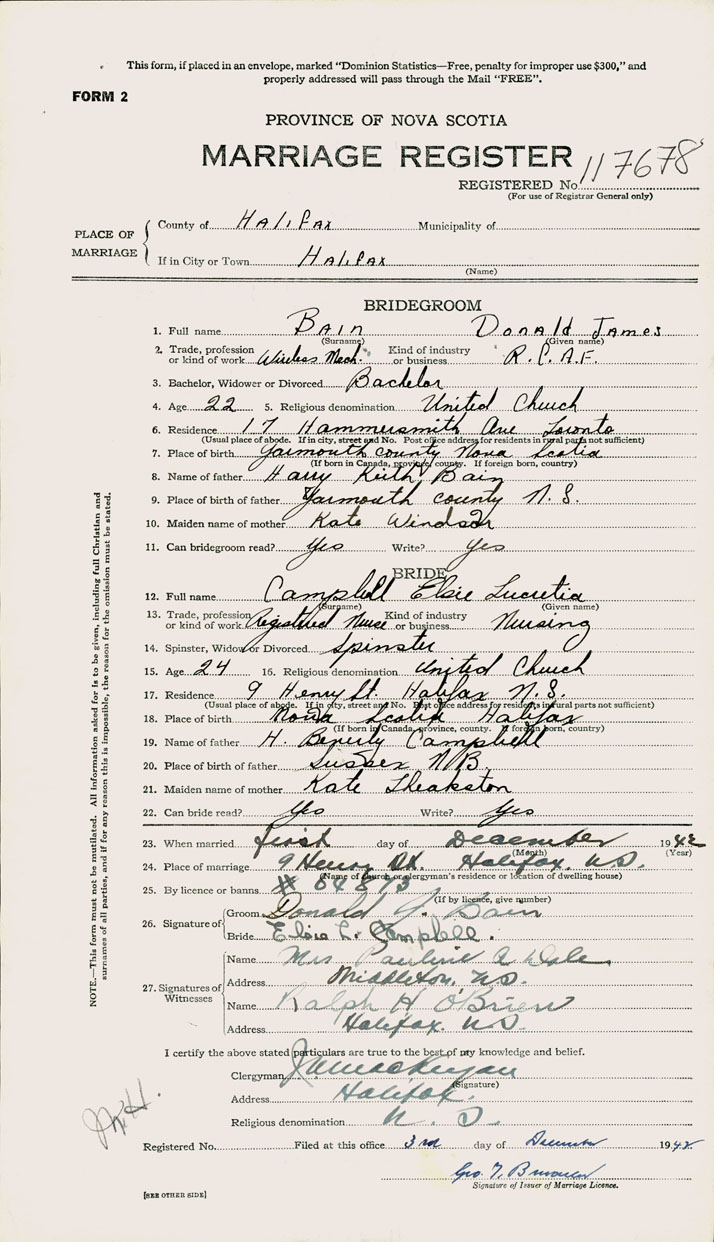 This form, if placed in an envelope, marked "Dominion Statistics—Free, penalty for improper use $300," and
properly addressed will pass through the Mail "FREE".
FORM 2
PROVINCE OF NOVA SCOTIA
MARRIAGE REGISTER
REGISTERED No. 117678
(For use of Registrar General only)
PLACE OF MARRIAGE
County of Halifax Municipality of
If in City or Town Halifax
(Name)
BRIDEGROOM
1. Full name Bain Donald James
(Surname) (Given name)
2. Trade, profession or kind of work Wireless Mech. Kind of industry or business R.C.A.F.
3. Bachelor, Widower or Divorced Bachelor
4. Age 22 5. Religious denomination United Church
6. Residence 17 Hammersmith Ave Toronto
(Usual place of abode. If in city, street and No. Post office address for residents in rural parts not sufficient)
7. Place of birth Yarmouth county Nova Scotia
(If born in Canada, province, county. If foreign born, country)
8. Name of father Harry Keith Bain
9. Place of birth of father Yarmouth county N.S.
10. Maiden name of mother Kate Windsor
11. Can bridegroom read? Yes Write? Yes
BRIDE
12. Full name Campbell Elsie Lucretia
(Surname) (Given name)
13. Trade, profession or kind of work Registered Nurse Kind of industry or business Nursing
14. Spinster, Widow or Divorced Spinster
15. Age 24 16. Religious denomination United Church
17. Residence 9 Henry St. Halifax N.S.
(Usual place of abode. If in city, street and No. Post office address for residents in rural parts not sufficient)
18. Place of birth Nova Scotia Halifax
(If born in Canada, province, county. If foreign born, country)
19. Name of father H. Beverly Campbell
20. Place of birth of father Sussex N.B.
21. Maiden name of mother Kate Theakston
22. Can bride read? Yes Write? Yes
23. When married first day of December 1942
(Month) (Year)
24. Place of marriage 9 Henry St. Halifax. N.S.
(Name of church or clergyman's residence or location of dwelling house)
25. By licence or banns # 64873
(If by licence, give number)
26. Signature of
Groom Donald J. Bain
Bride Elsie L. Campbell.
27. Signatures of Witnesses
Name Mrs Pauline A Dale
Address Middleton, N.S.
Name Ralph H O'Brien
Address Halifax. N.S.
I certify the above stated particulars are true to the best of my knowledge and belief.
Clergyman
(Signature)
Address Halifax.
Religious denomination
Registered No. Filed at this office 3rd day of December 1942
Geo. T.
Signature of Issuer of Marriage Licence.
[SEE OTHER SIDE]
NOTE.—This form must not be mutilated. All information asked for is to be given, including full Christian and
surnames of all parties, and if for any reason this is impossible, the reason for the omission must be stated.